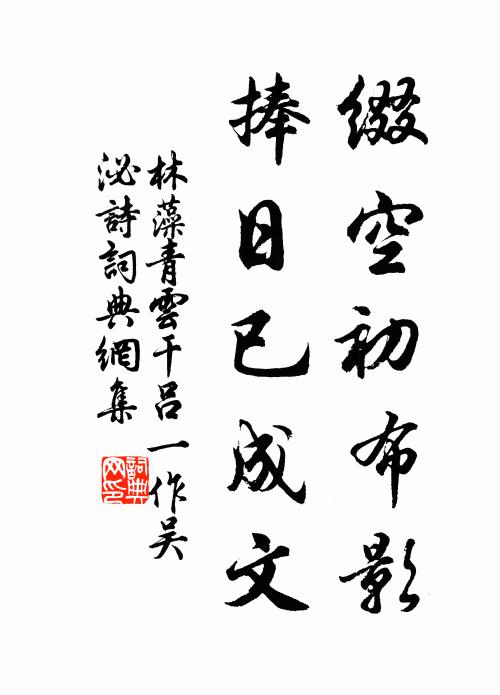 綴空初布影
捧日已成文
林藻青雲干呂一作吴
泌詩詞典網集
詞典網印